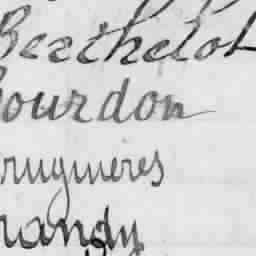 Berthelot
ourdon
rugieres
randy